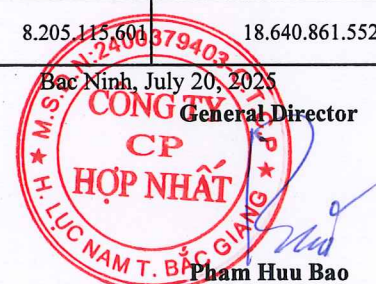 8.205.115.601 18.640.861.552
Bac Ninh, July 20, 2025
General Director
M.S.D.N:2400379403-C.T.C.P
CÔNG TY
CP
HỢP NHẤT
H. LỤC NAM T. BẮC GIANG
Pham Huu Bao